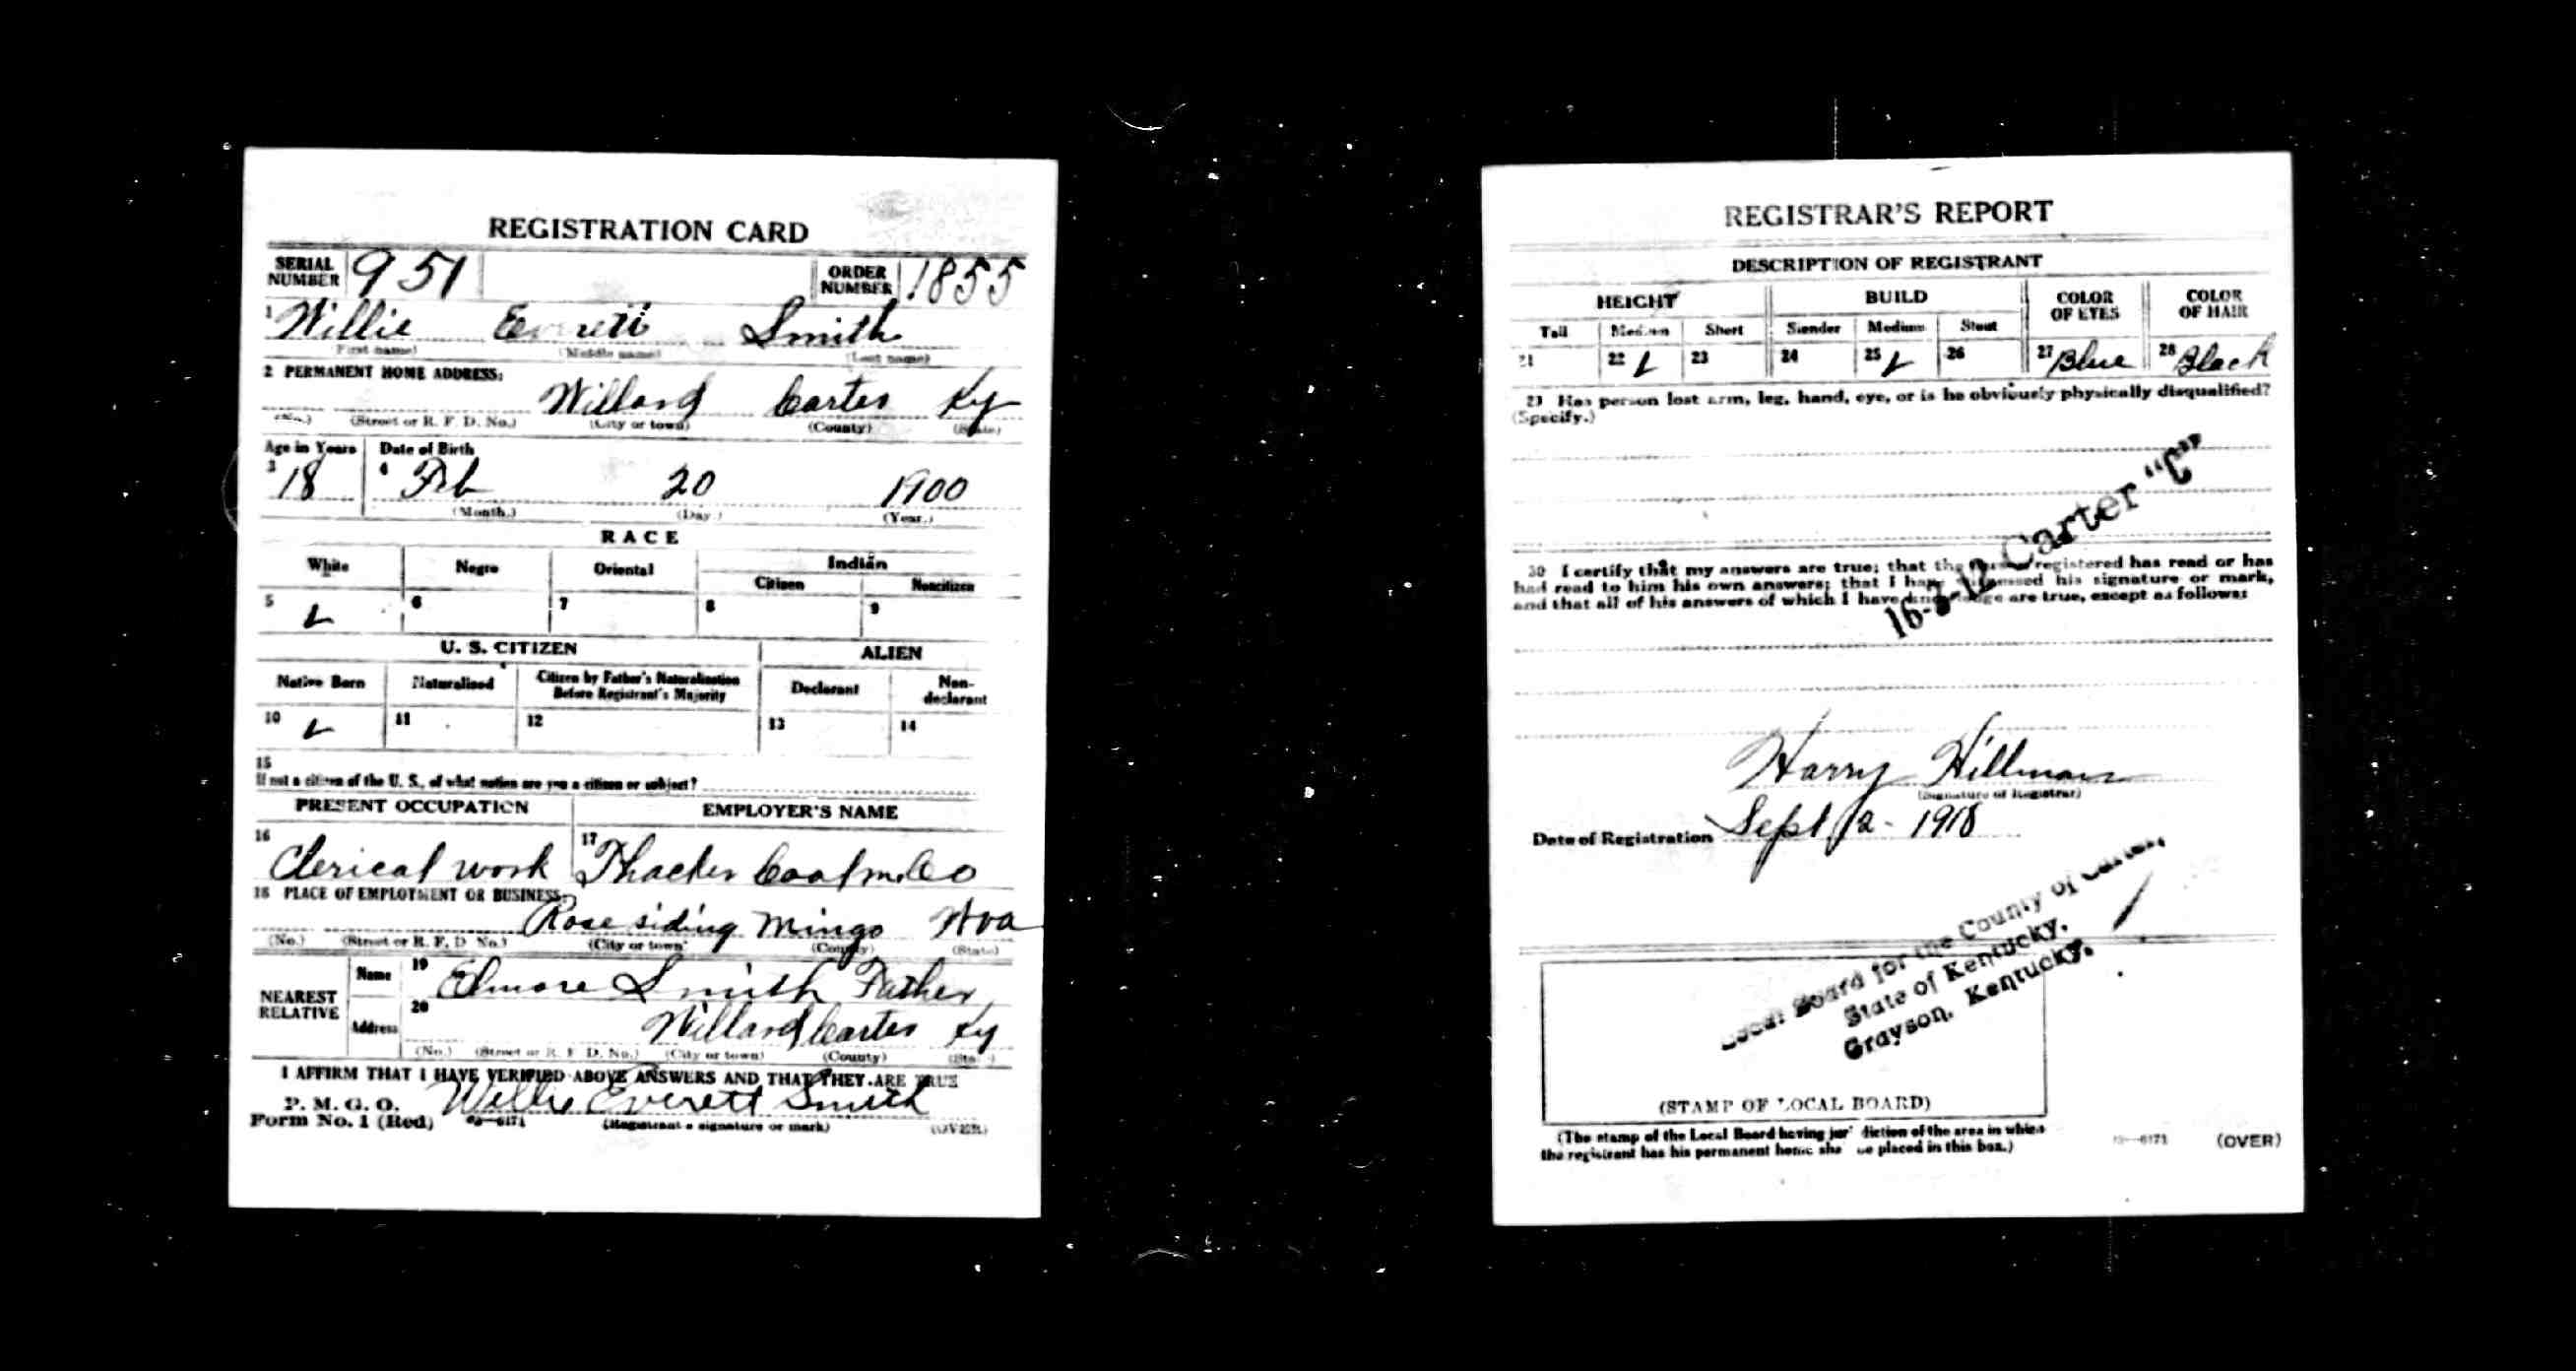 REGISTRATION CARD
SERIAL NUMBER 951 ORDER NUMBER 1855
1 Willie Everett Smith
(First name) (Middle name) (Last name)
2 PERMANENT HOME ADDRESS:
Willard Carter Ky
(No.) (Street or R. F. D. No.) (City or town) (County) (State)
Age in Years Date of Birth
3 18 4 Feb 20 1900
(Month.) (Day.) (Year.)
RACE
White Negro Oriental Indian
Citizen Noncitizen
5 ✓ 6 7 8 9
U. S. CITIZEN ALIEN
Native Born Naturalized Citizen by Father's Naturalization Before Registrant's Majority Declarant Non-declarant
10 ✓ 11 12 13 14
15
If not a citizen of the U. S., of what nation are you a citizen or subject?
PRESENT OCCUPATION EMPLOYER'S NAME
16 Clerical work 17 Thacker Coal m. Co
18 PLACE OF EMPLOYMENT OR BUSINESS:
Rose siding Mingo Wva
(No.) (Street or R. F. D. No.) (City or town) (County) (State)
NEAREST RELATIVE
Name 19 Elmore Smith Father
Address 20 Willard Carter Ky
(No.) (Street or R. F. D. No.) (City or town) (County) (State)
I AFFIRM THAT I HAVE VERIFIED ABOVE ANSWERS AND THAT THEY ARE TRUE
P. M. G. O.
Form No. 1 (Red) 03—6171 Willie Everett Smith
(Registrant's signature or mark) (OVER)
REGISTRAR'S REPORT
DESCRIPTION OF REGISTRANT
HEIGHT BUILD COLOR OF EYES COLOR OF HAIR
Tall Medium Short Slender Medium Stout
21 22 ✓ 23 24 25 ✓ 26 27 Blue 28 Black
29 Has person lost arm, leg, hand, eye, or is he obviously physically disqualified?
(Specify.)
16-3-12 Carter "C"
30 I certify that my answers are true; that the person registered has read or has
had read to him his own answers; that I have witnessed his signature or mark,
and that all of his answers of which I have knowledge are true, except as follows:
Harry Hillman
(Signature of Registrar)
Date of Registration Sept 12- 1918
Local Board for the County of Carter,
State of Kentucky,
Grayson, Kentucky.
(STAMP OF LOCAL BOARD)
(The stamp of the Local Board having jurisdiction of the area in which
the registrant has his permanent home shall be placed in this box.)
03—6171 (OVER)